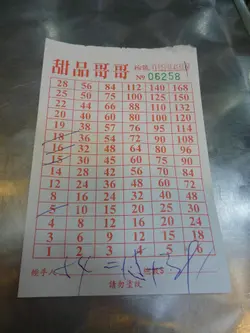 甜品哥哥
№ 06258
28 56 84 112 140 168
25 50 75 100 125 150
22 44 66 88 110 132
20 40 60 80 100 120
19 38 57 76 95 114
18 36 54 72 90 108
16 32 48 64 80 96
15 30 45 60 75 90
12 24 36 48 60 72
8 16 24 32 40 48
5 10 15 20 25 30
4 8 12 16 20 24
3 6 9 12 15 18
1 2 3 4 5 6
經手人 總數$
請勿塗改